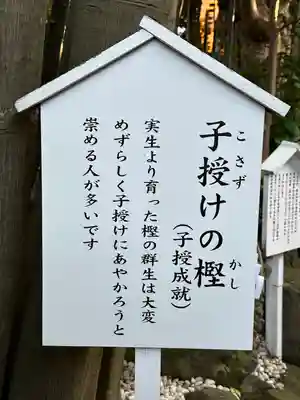 子授けの樫
こさず
かし
(子授成就)
実生より育った樫の群生は大変
めずらしく子授けにあやかろうと
崇める人が多いです